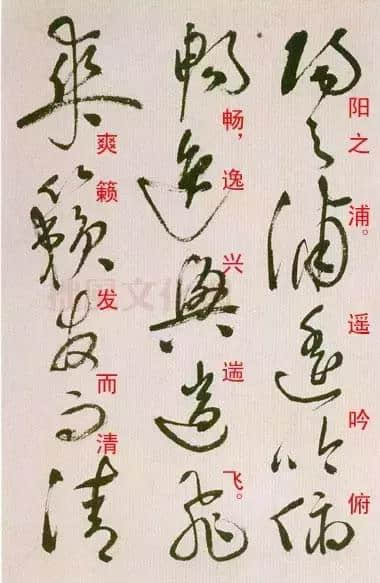 陽之浦遥吟俯
阳之浦。遥吟俯
暢逸興遄飛
畅，逸兴遄飞。
爽籟發而清
爽籁发而清